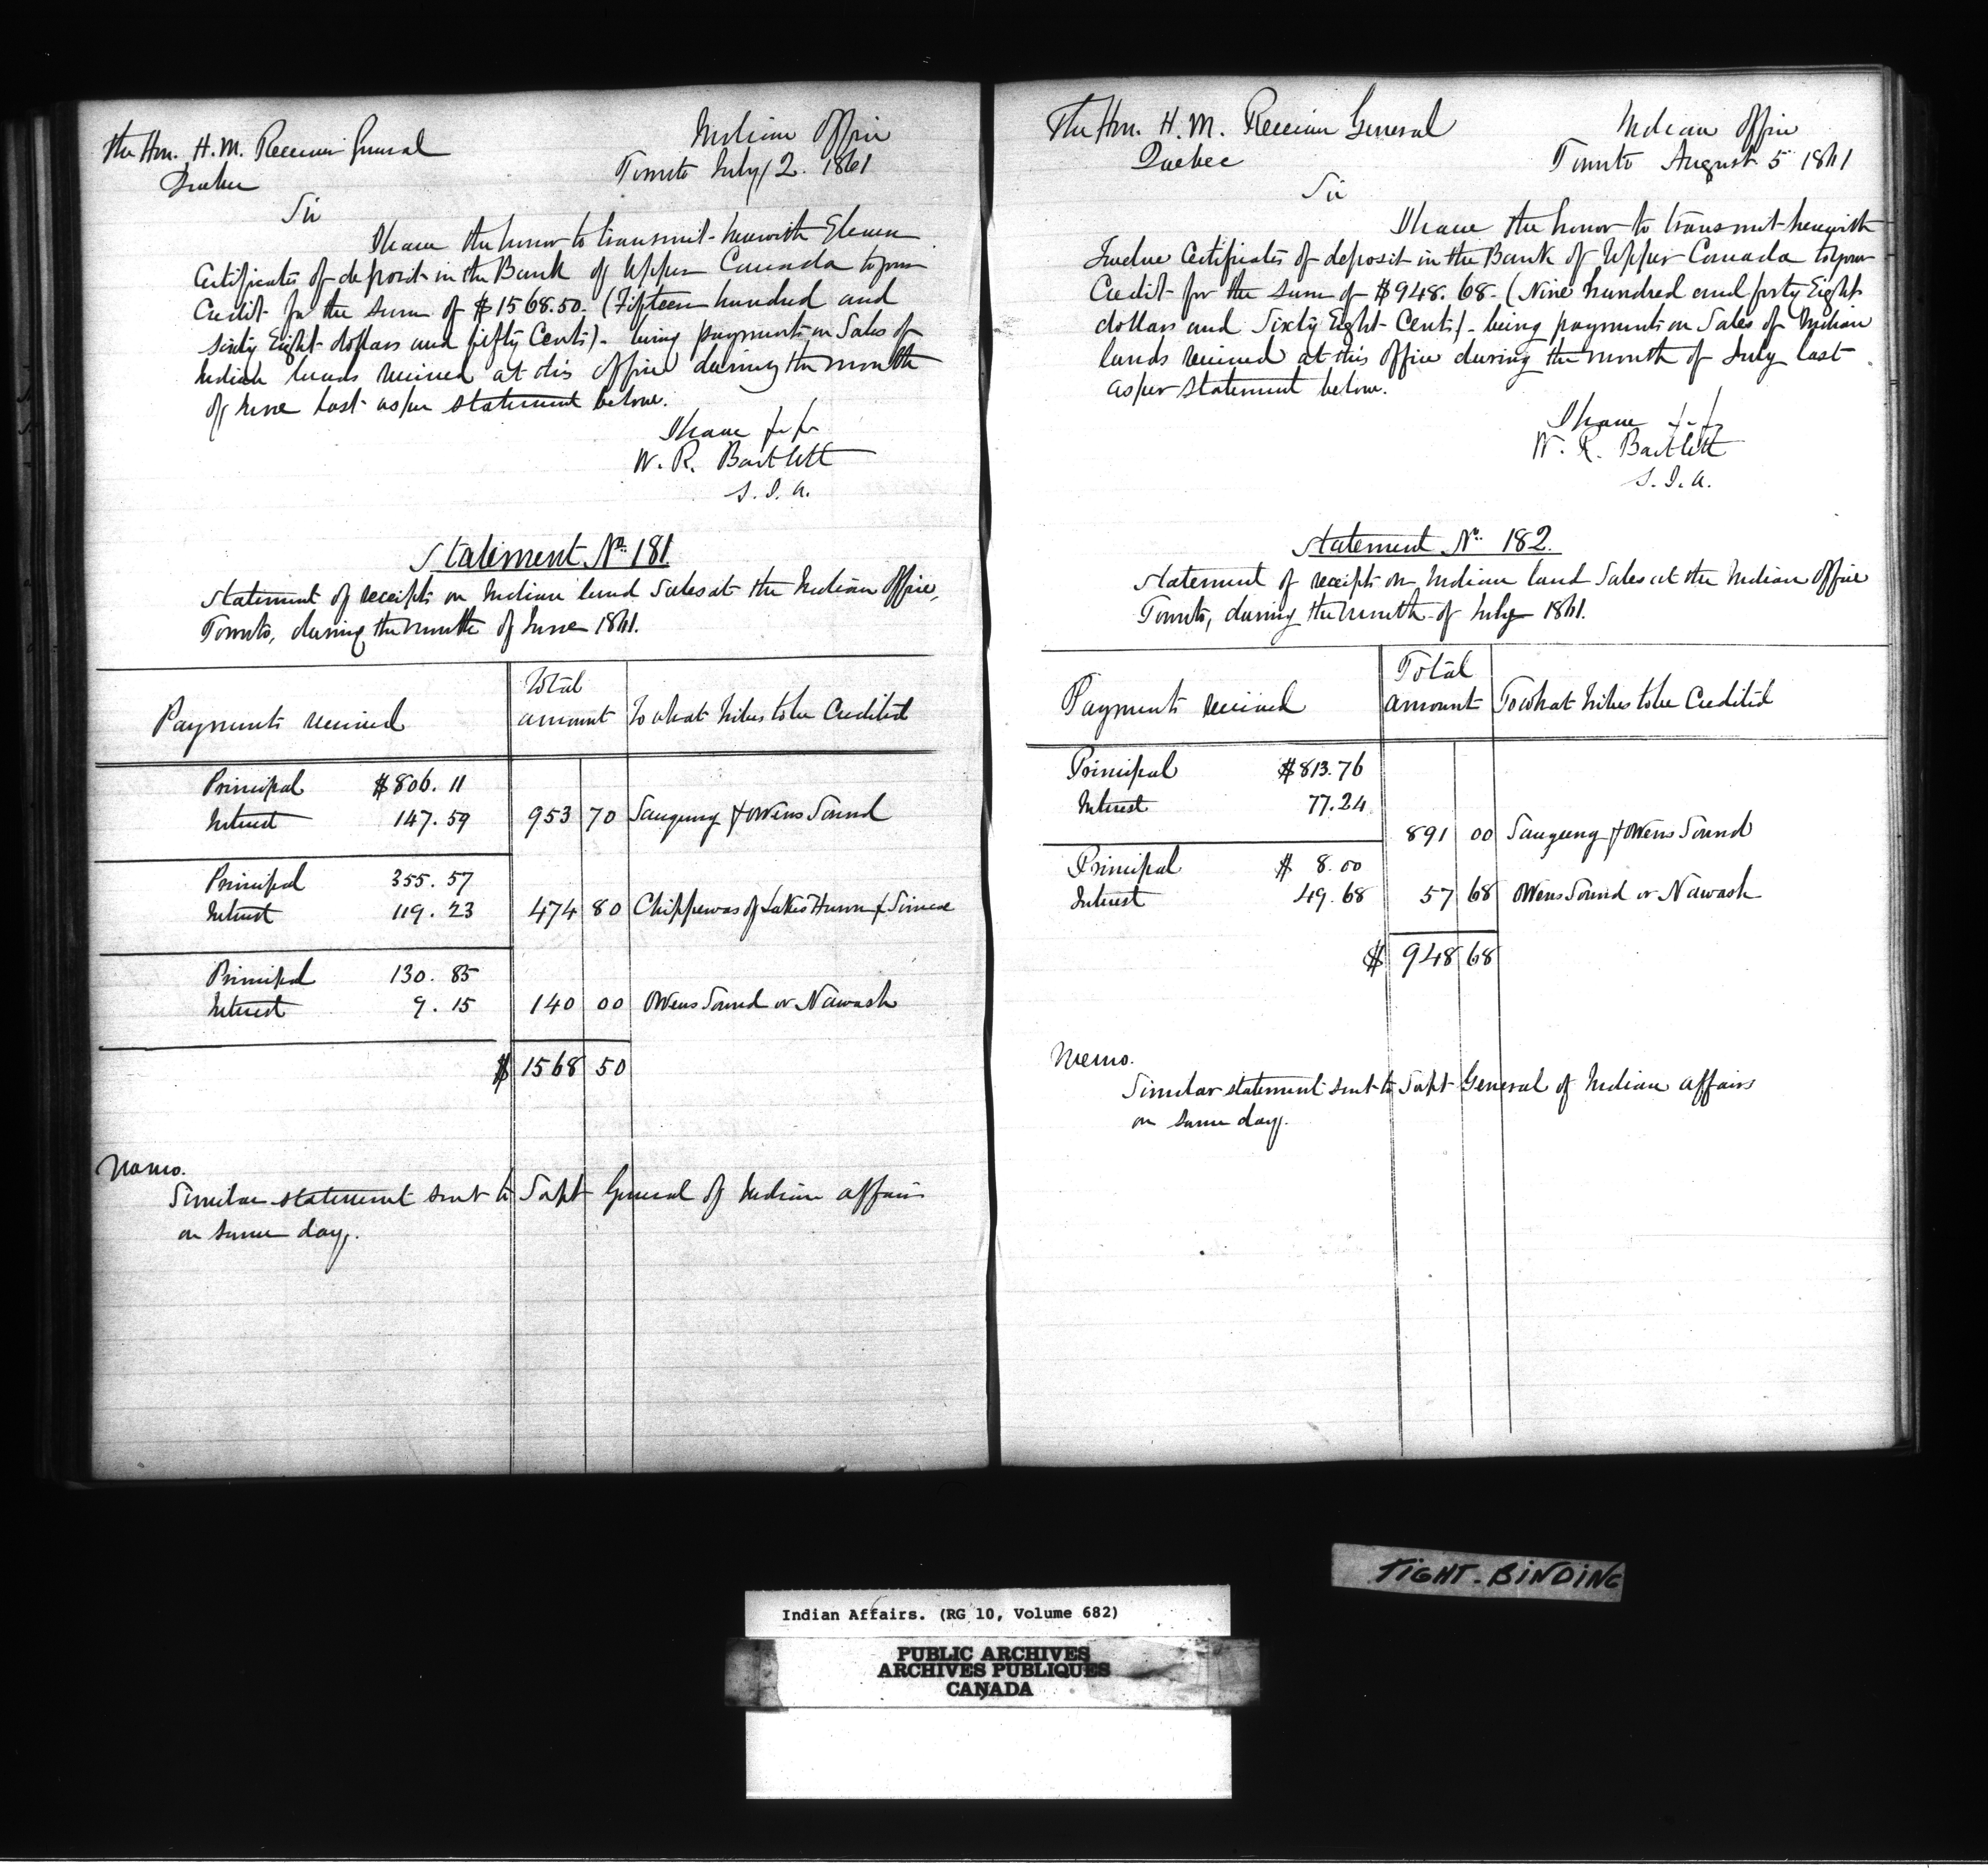 The Hon. H. M. Receiver General
Quebec
Indian Office
Toronto July 2. 1861
Sir
I have the honor to transmit herewith Eleven
Certificates of deposit in the Bank of Upper Canada to your
Credit for the sum of $1568.50. (Fifteen hundred and
Sixty Eight dollars and fifty Cents) - being payments on Sales of
Indian lands received at this Office during the month
of June last as per statement below.
I have
W. R. Bartlett
S. I. A.
Statement No. 181
Statement of receipts on Indian land Sales at the Indian Office,
Toronto, during the month of June 1861.
Payments received
Total amount
To what tribes to be Credited
Principal $806. 11
Interest 147. 59 953 70 Saugeeng & Owens Sound
Principal 355. 57
Interest 119. 23 474 80 Chippewas of Lakes Huron & Simcoe
Principal 130. 85
Interest 9. 15 140 00 Owens Sound or Nawash
$ 1568 50
Memo.
Similar statement sent to Supt General of Indian affairs
on same day.
The Hon. H. M. Receiver General
Quebec
Indian Office
Toronto August 5 1861
Sir
I have the honor to transmit herewith
Twelve Certificates of deposit in the Bank of Upper Canada to your
Credit for the sum of $948. 68 - (Nine hundred and forty Eight
dollars and Sixty Eight Cents) - being payments on Sales of Indian
lands received at this Office during the month of July last
as per statement below.
I have
W. R. Bartlett
S. I. A.
Statement No. 182.
Statement of receipts on Indian land Sales at the Indian Office
Toronto, during the month of July 1861.
Payments received
Total amount
To what tribes to be Credited
Principal $813.76
Interest 77.24
891 00 Saugeeng & Owens Sound
Principal $ 8.00
Interest 49.68 57 68 Owens Sound or Nawash
$ 948 68
Memo.
Similar statement sent to Supt General of Indian affairs
on same day.
TIGHT-BINDING
Indian Affairs. (RG 10, Volume 682)
PUBLIC ARCHIVES
ARCHIVES PUBLIQUES
CANADA